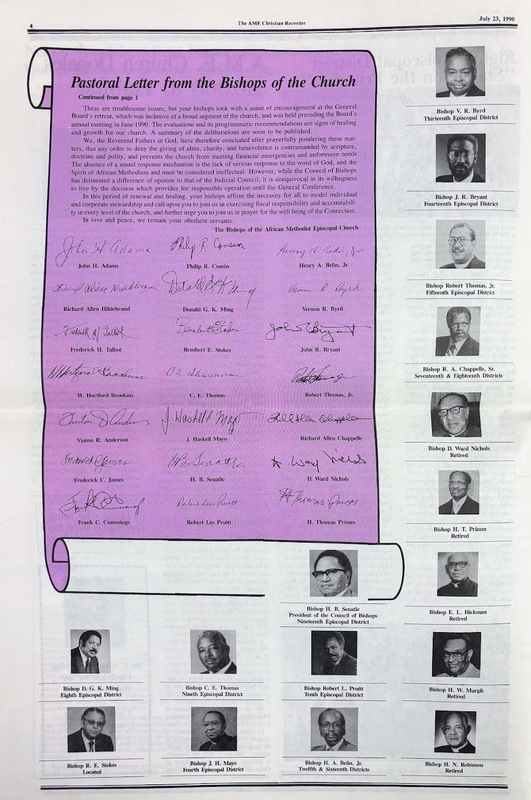 4
The AME Christian Recorder
July 23, 1990
Pastoral Letter from the Bishops of the Church
Continued from page 1
These are troublesome issues, but your bishops look with a sense of encouragement at the General
Board's retreat, which was inclusive of a broad segment of the church, and was held preceding the Board's
annual meeting in June-1990. The evaluations and its programmatic recommendations are signs of healing
and growth for our church. A summary of the deliberations are soon to be published.
We, the Reverend Fathers in God, have therefore concluded after prayerfully pondering these mat-
ters, that any order to deny the giving of alms, charity, and benevolence is contramanded by scripture,
doctrine and polity, and prevents the church from meeting financial emergencies and unforeseen needs
The absence of a sound response mechanism is the lack of serious response to the word of God, and the
Spirit of African Methodism and must be considered ineffectual. However, while the Council of Bishops
has delineated a difference of opinion to that of the Judicial Council, it is unequivocal in its willingness
to live by the decision which provides for responsible operation until the General Conference.
In this period of renewal and healing, your bishops affirm the necessity for all to model individual
and corporate stewardship and call upon you to join us in exercising fiscal responsibility and accountabili-
ty in every level of the church, and further urge you to join us in prayer for the well being of the Connection.
In love and peace, we remain your obedient servants.
The Bishops of the African Methodist Episcopal Church
John H Adams
Philip R Cousin
John H. Adams
Philip R. Cousin
Henry A. Belin, Jr.
Vernon R. Byrd
Richard Allen Hildebrand
Donald G. K. Ming
Vernon R. Byrd
Frederick H. Talbot
Reinbert E. Stokes
John R. Bryant
Frederick H. Talbot
Reinbert E. Stokes
John R. Bryant
H. Hartford Brookins
C. E. Thomas
Robert Thomas, Jr.
Vinton R. Anderson
J. Haskell Mayo
Richard Allen Chappelle
Frederick C. James
H. B. Senatle
D. Ward Nichols
Robert Lee Pruitt
H Thomas Primm
Frank C. Cummings
Robert Lee Pruitt
H. Thomas Primm
Bishop V. R. Byrd
Thirteenth Episcopal District
Bishop J. R. Bryant
Fourteenth Episcopal District
Bishop Robert Thomas, Jr.
Fifteenth Episcopal District
Bishop R. A. Chappelle, Sr.
Seventeenth & Eighteenth Districts
Bishop D. Ward Nichols
Retired
Bishop H. T. Primm
Retired
Bishop E. L. Hickman
Retired
Bishop H. W. Murph
Retired
Bishop H. N. Robinson
Retired
Bishop H. B. Senatle
President of the Council of Bishops
Nineteenth Episcopal District
Bishop D. G. K. Ming
Eighth Episcopal District
Bishop C. E. Thomas
Nineth Episcopal District
Bishop Robert L. Pruitt
Tenth Episcopal District
Bishop R. E. Stokes
Located
Bishop J. H. Mayo
Fourth Episcopal District
Bishop H. A. Belin, Jr.
Twelfth & Sixteenth Districts